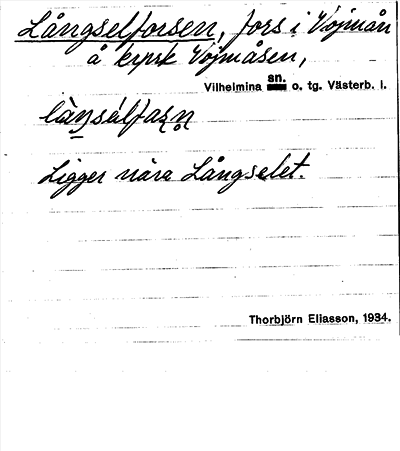 Långselforsen, fors i Vojmån
å kyrk Vojmåsen,
Vilhelmina sn. o. tg. Västerb. l.
lå̀ŋsélfaʂn̥
Ligger nära Långselet.
Thorbjörn Eliasson, 1934.